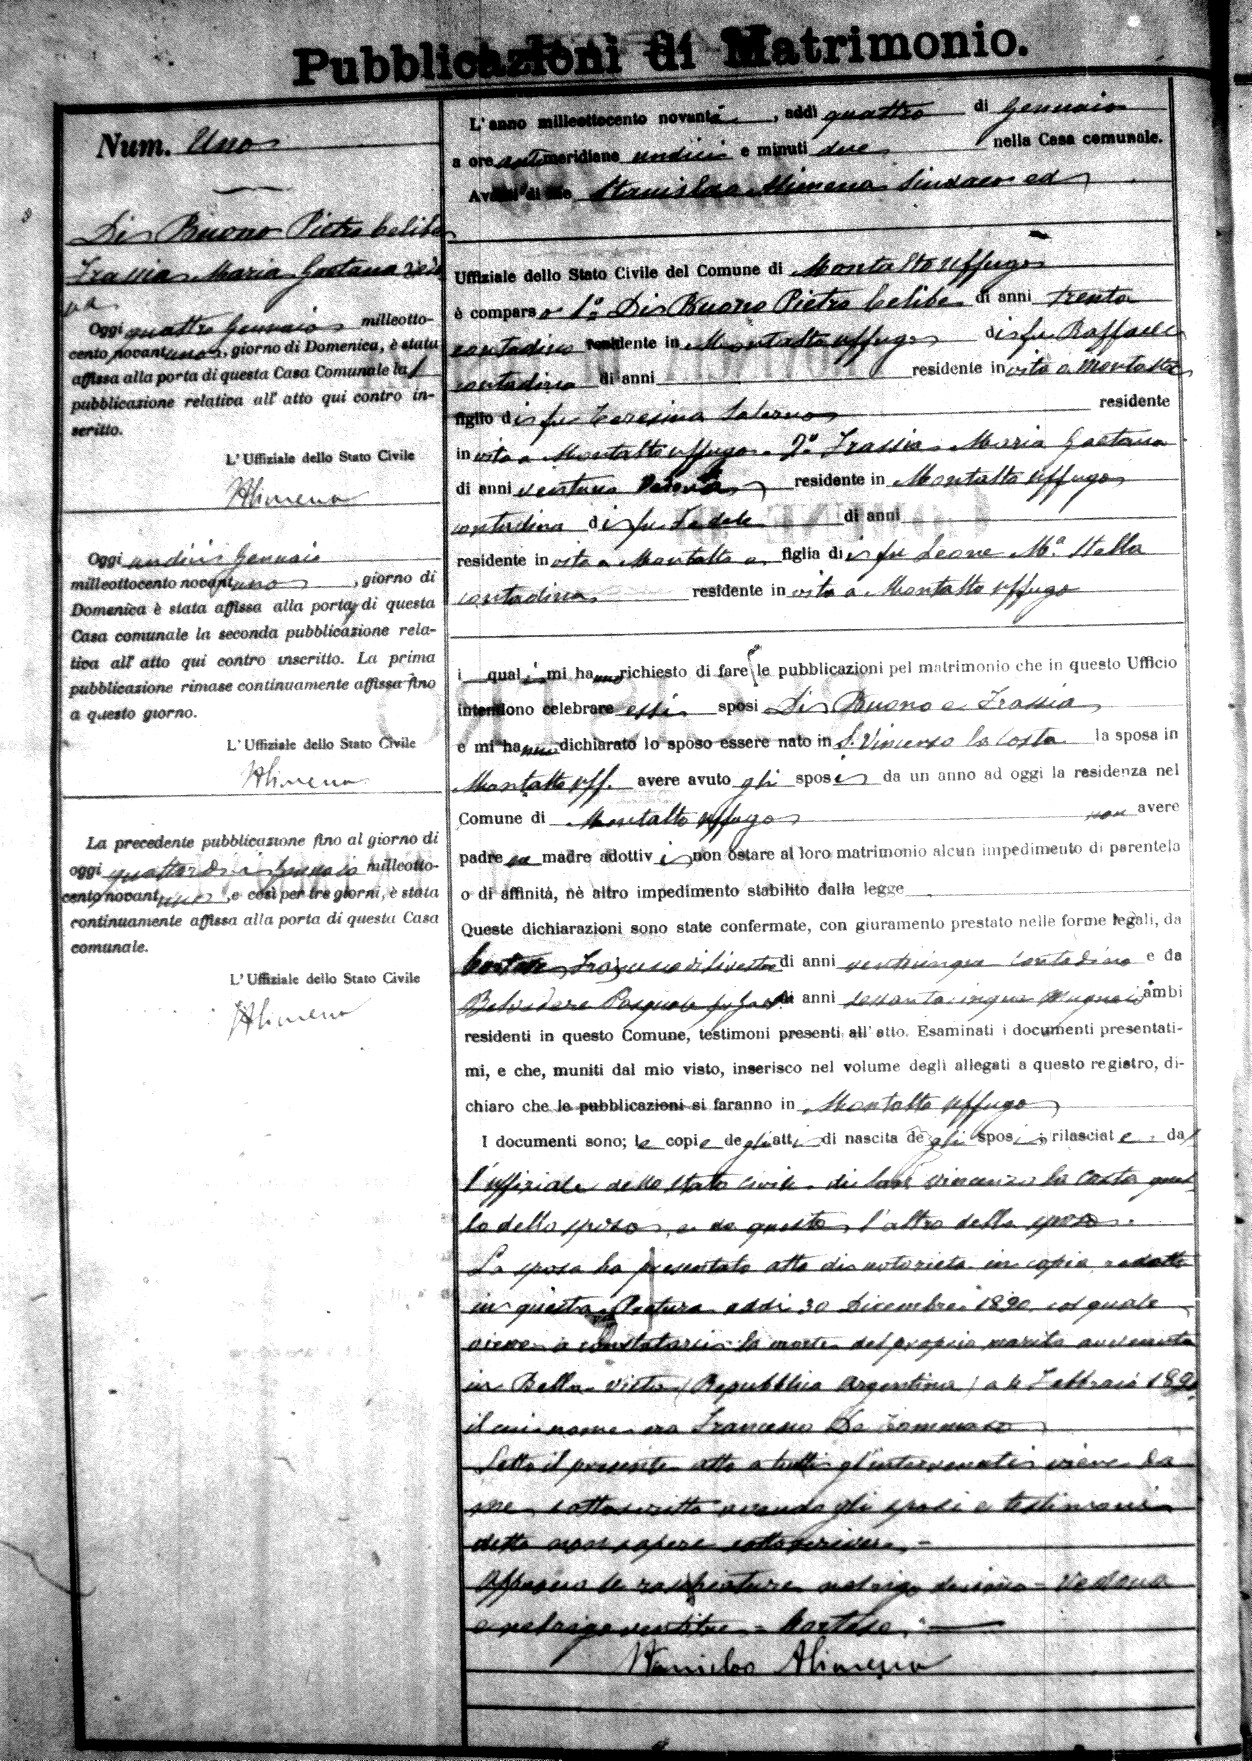 Pubblicazioni di Matrimonio.
Num. Uno
Di Buono Pietro celibe
Frassia Maria Gaetana vedo
va
Oggi quattro Gennaio milleotto-
cento novantuno, giorno di Domenica, è stata
affissa alla porta di questa Casa Comunale la 1
pubblicazione relativa all' atto qui contro in-
scritto.
L' Uffiziale dello Stato Civile
Alimena
Oggi undici Gennaio
milleottocento novantuno, giorno di
Domenica è stata affissa alla porta di questa
Casa comunale la seconda pubblicazione rela-
tiva all' atto qui contro inscritto. La prima
pubblicazione rimase continuamente affissa fino
a questo giorno.
L' Uffiziale dello Stato Civile
Alimena
La precedente pubblicazione fino al giorno di
oggi quattordici Gennaio milleotto-
cento novantuno, e così per tre giorni, è stata
continuamente affissa alla porta di questa Casa
comunale.
L' Uffiziale dello Stato Civile
Alimena
L' anno milleottocento novanta, addì quattro di Gennaio
a ore antimeridiane undici e minuti due nella Casa comunale.
Avanti di me Stanislao Alimena Sindaco ed
Uffiziale dello Stato Civile del Comune di Montalto Uffugo
è comparso 1º Di Buono Pietro celibe di anni trenta
contadino residente in Montalto Uffugo di fu Raffaele
contadino di anni residente in vita a Montalto
figlio di fu Teresina Salerno residente
in vita a Montalto Uffugo 2º Frassia Maria Gaetana
di anni ventuno Vedova residente in Montalto Uffugo
contadina di fu Fedele di anni
residente in vita a Montalto figlia di fu Leone Mª Stella
contadina residente in vita a Montalto Uffugo
i quali mi hanno richiesto di fare le pubblicazioni pel matrimonio che in questo Ufficio
intendono celebrare essi sposi Di Buono e Frassia
e mi hanno dichiarato lo sposo essere nato in S. Vincenzo la Costa la sposa in
Montalto Uff. avere avuto gli sposi da un anno ad oggi la residenza nel
Comune di Montalto Uffugo non avere
padre madre adottivi non ostare al loro matrimonio alcun impedimento di parentela
o di affinità, nè altro impedimento stabilito dalla legge
Queste dichiarazioni sono state confermate, con giuramento prestato nelle forme legali, da
Francesco di Silvestro di anni venticinque contadino e da
Belvedere Pasquale di anni sessantacinque Mugnaio ambi
residenti in questo Comune, testimoni presenti all' atto. Esaminati i documenti presentati-
mi, e che, muniti dal mio visto, inserisco nel volume degli allegati a questo registro, di-
chiaro che le pubblicazioni si faranno in Montalto Uffugo
I documenti sono; le copie degli atti di nascita degli sposi, rilasciate dal
l'uffiziale dello stato civile di San Vincenzo la Costa quel
lo dello sposo, e da questo l'altro della sposa.
La sposa ha presentato atto di notorietà in copia redatto
in questa Pretura addì 30 Dicembre 1890 col quale
viene a constatarsi la morte del proprio marito avvenuta
in Bella Vista (Repubblica Argentina) a 4 Febbraio 1890
il cui nome era Francesco De Tommaso
Letto il presente atto a tutti gl'intervenuti viene da
me sottoscritto avendo gli sposi e testimoni
detto non sapere sottoscrivere.
Approvo le raschiature nel rigo decimo = Vedova
e nel rigo ventitre =
Stanislao Alimena